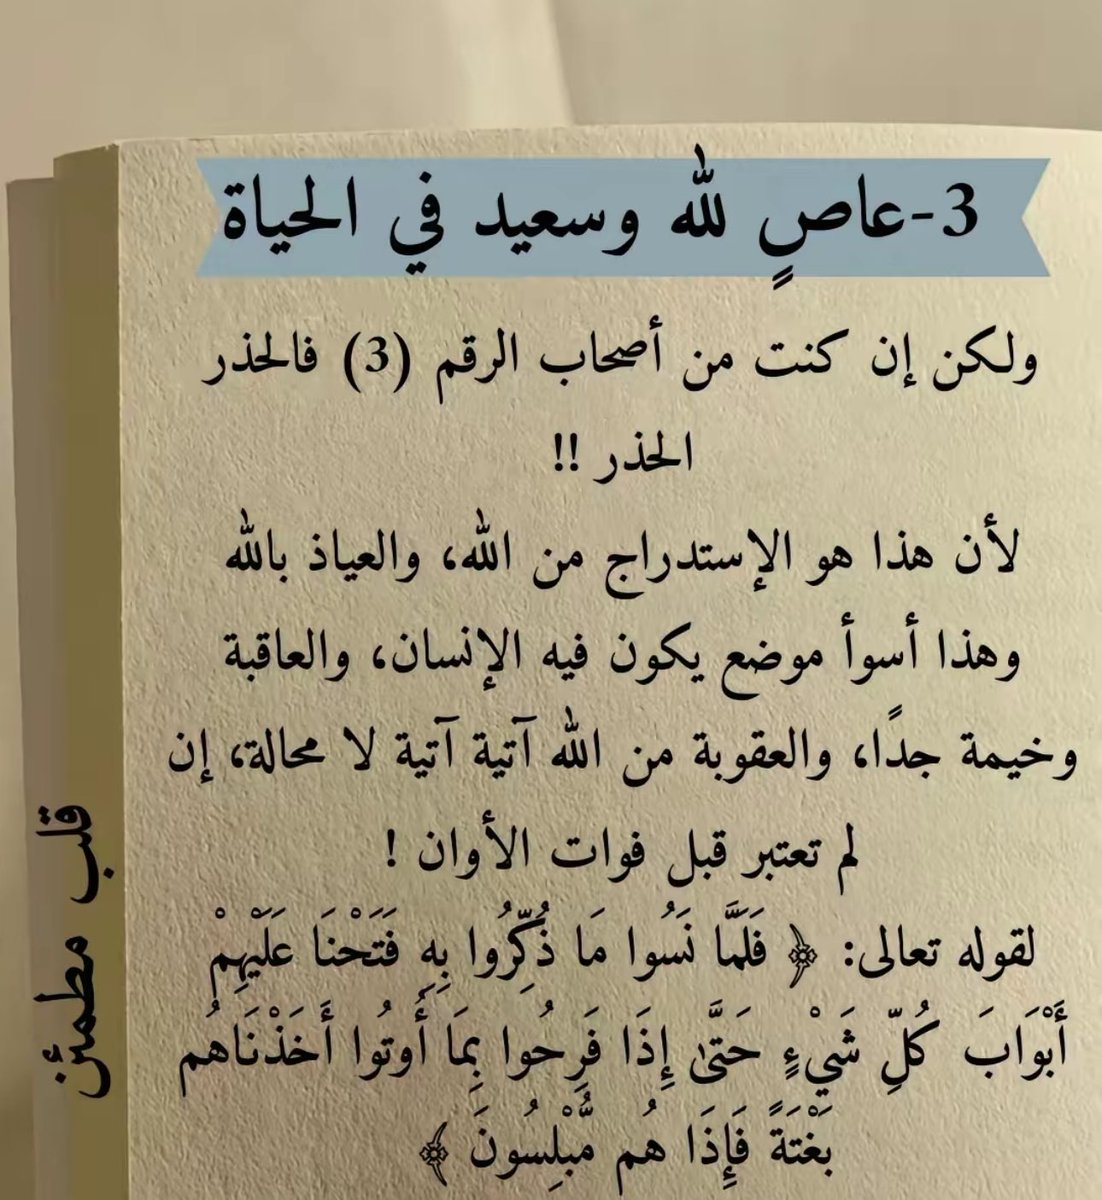 3-عاصٍ لله وسعيد في الحياة
ولكن إن كنت من أصحاب الرقم (3) فالحذر
الحذر !!
لأن هذا هو الإستدراج من الله، والعياذ بالله
وهذا أسوأ موضع يكون فيه الإنسان، والعاقبة
وخيمة جدًا، والعقوبة من الله آتية آتية لا محالة، إن
لم تعتبر قبل فوات الأوان !
لقوله تعالى: ﴿ فَلَمَّا نَسُوا مَا ذُكِّرُوا بِهِ فَتَحْنَا عَلَيْهِمْ
أَبْوَابَ كُلِّ شَيْءٍ حَتَّىٰ إِذَا فَرِحُوا بِمَا أُوتُوا أَخَذْنَاهُم
بَغْتَةً فَإِذَا هُم مُّبْلِسُونَ ﴾
قلب مطمئن